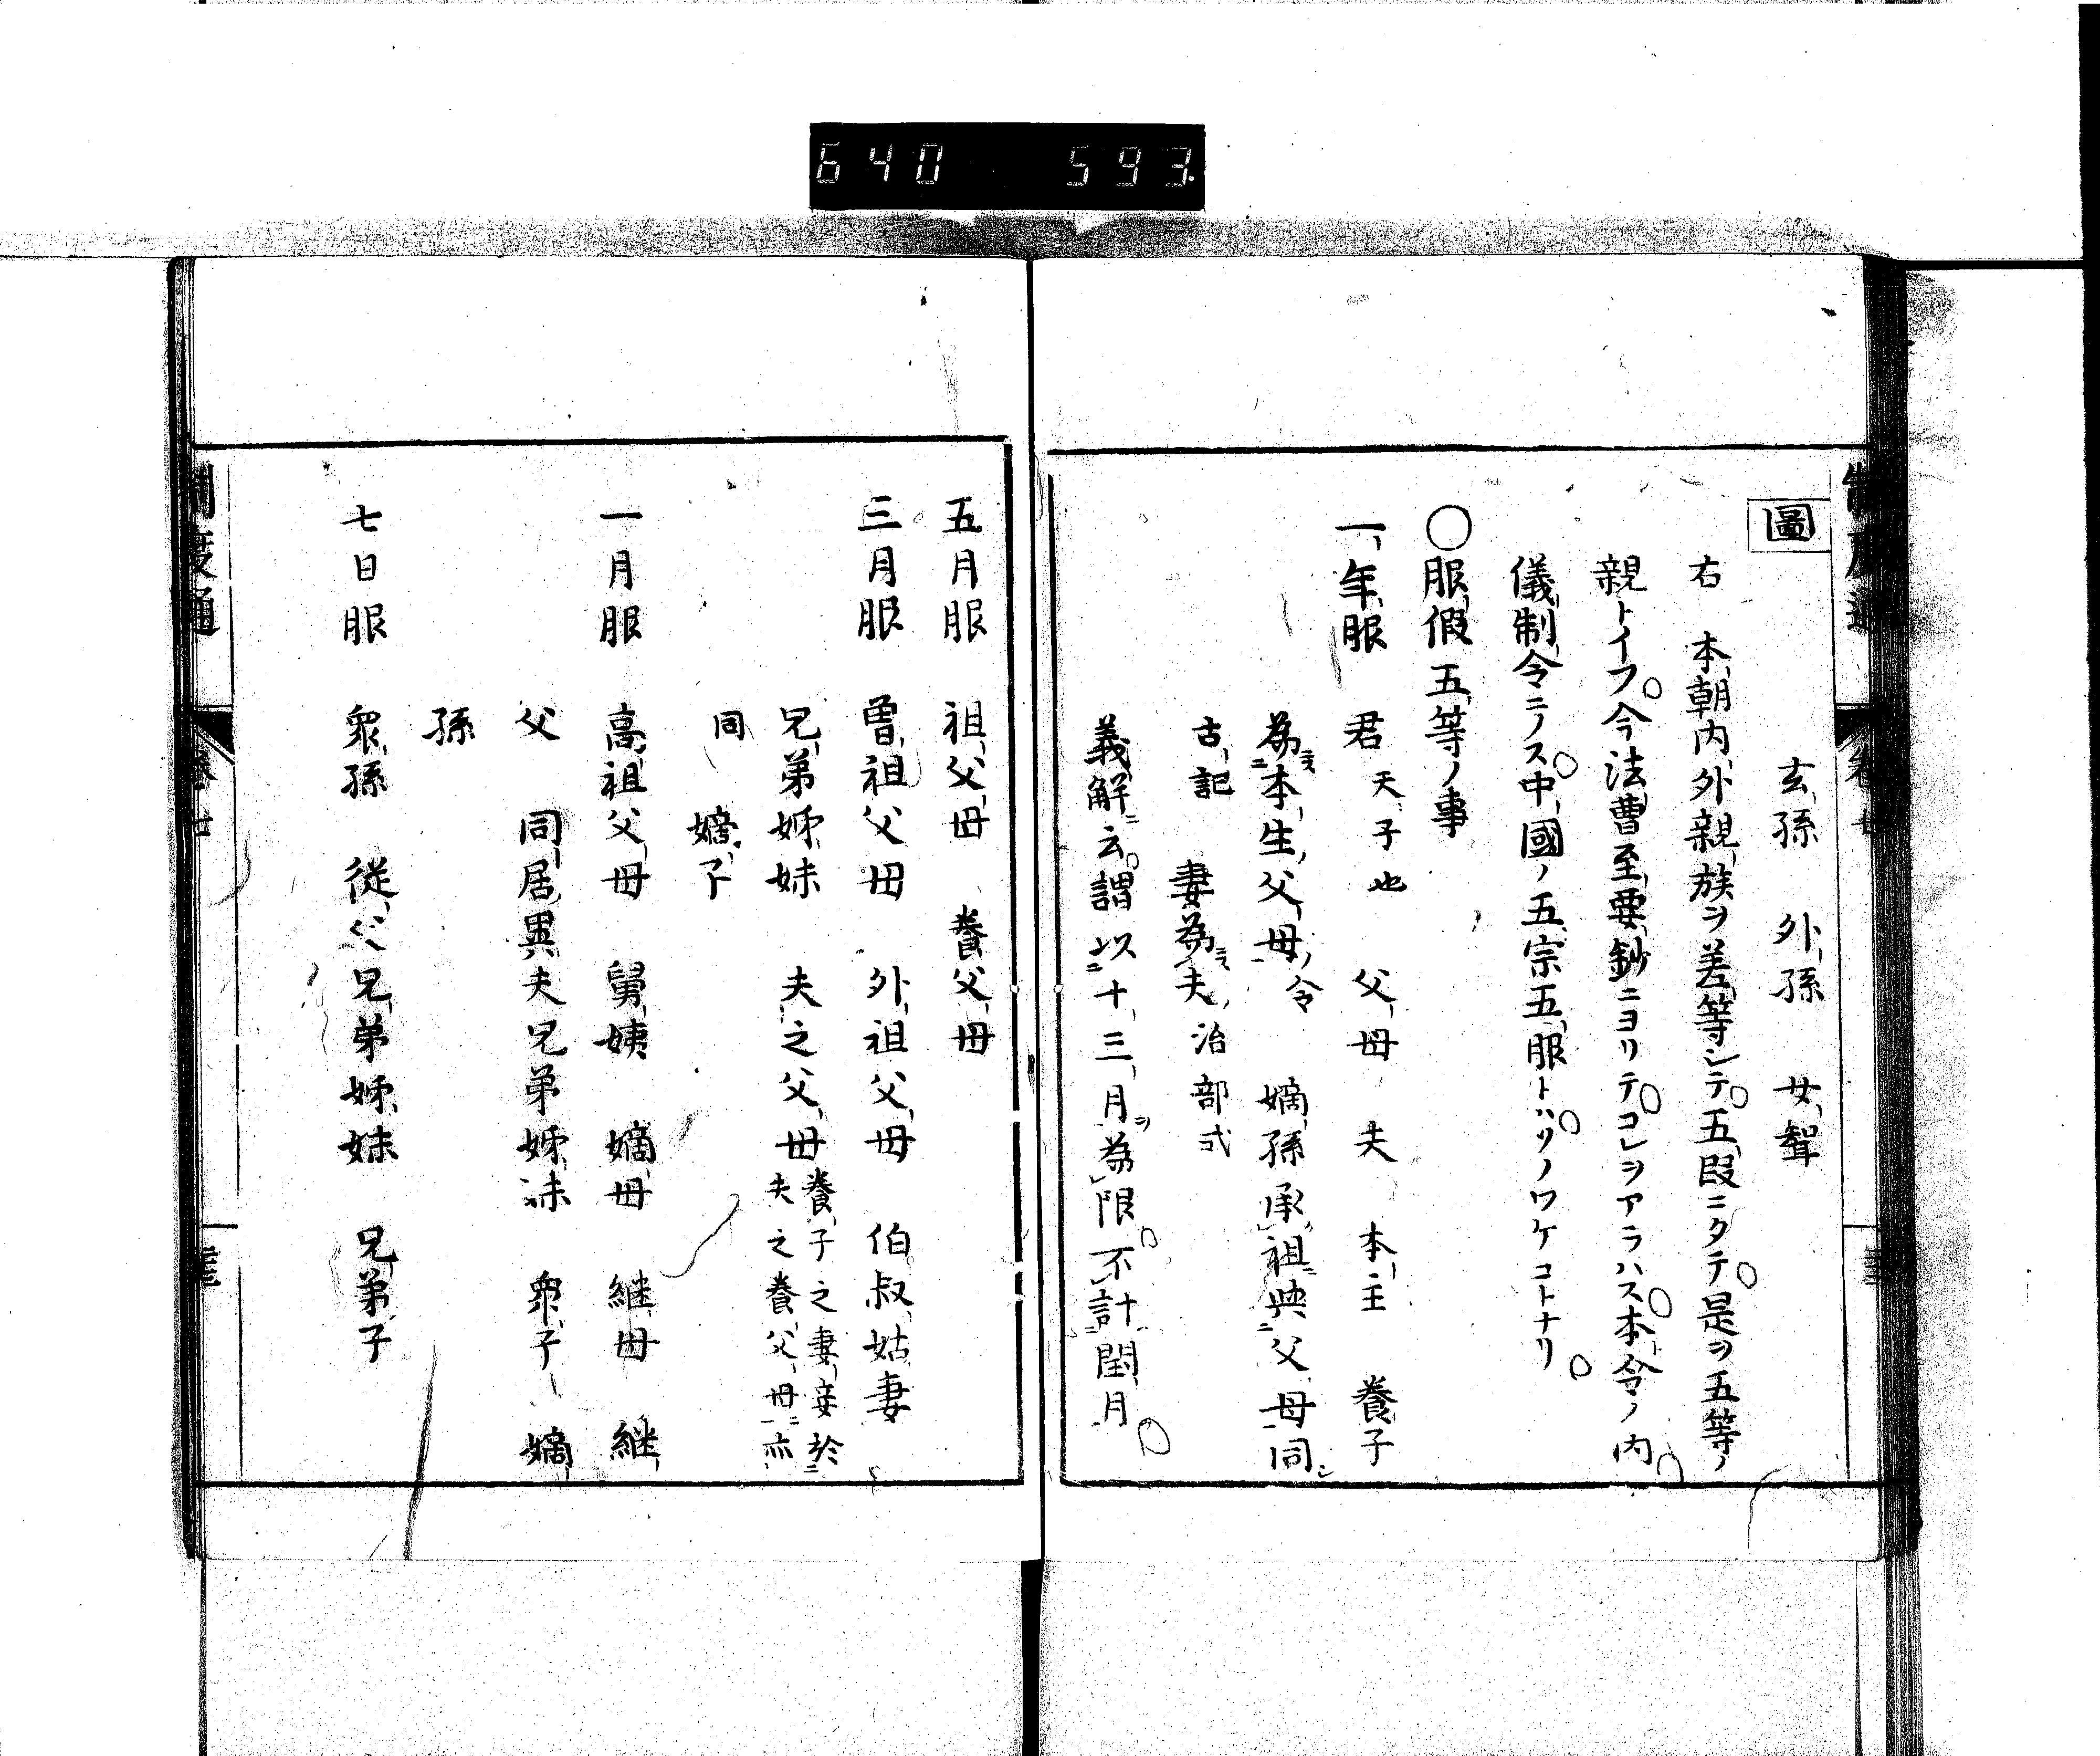 640 593.
制度通 卷七
圖
玄孫 外孫 女聟
右 本朝内外親族ヲ差等シテ五段ニタテ是ヲ五等ノ
親トイフ今法曹至要鈔ニヨリテコレヲアラハス本令ノ内
儀制令ニノス中國ノ五宗五服トハソノワケコトナリ
○服假五等ノ事
一年服 君天子也 父母 夫 本主 養子
為本生父母令 嫡孫承祖與父母同
古記 妻為夫治部式
義解云謂以十三月為限不計閏月
五月服 祖父母 養父母
三月服 曽祖父母 外祖父母 伯叔姑妻
兄弟姉妹 夫之父母養子之妻妾於
夫之養父母亦
同 嫡子
一月服 高祖父母 舅姨 嫡母 継母 継
父 同居異夫兄弟姉妹 衆子 嫡
孫
七日服 衆孫 従父兄弟姉妹 兄弟子
制度通 卷七